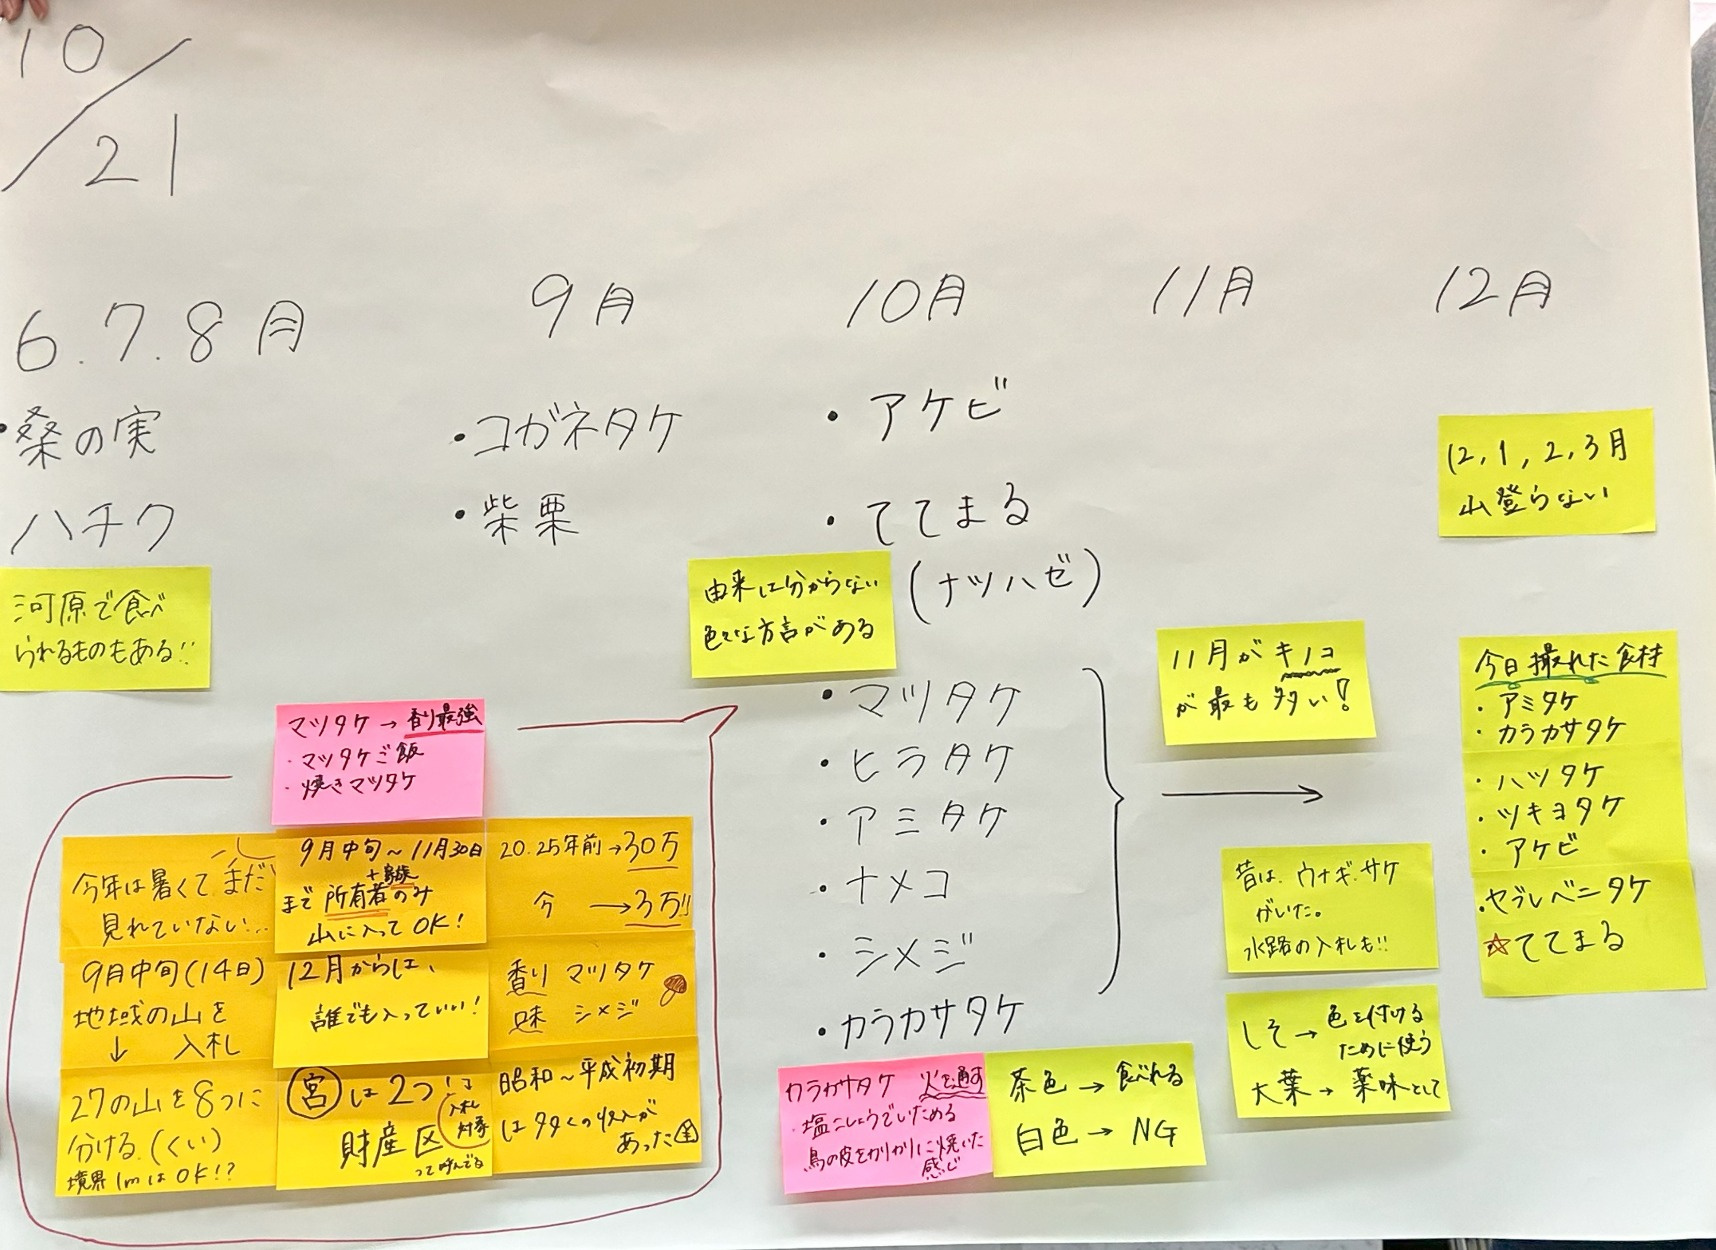 10/21
6.7.8月
・桑の実
ハチク
河原で食べ
られるものもある!!
9月
・コガネタケ
・柴栗
10月
・アケビ
・ててまる
(ナツハゼ)
由来は分からない
色々な方言がある
・マツタケ
・ヒラタケ
・アミタケ
・ナメコ
・シメジ
・カラカサタケ
11月
11月がキノコ
が最も多い!
12月
12,1,2,3月
山登らない
今日撮れた食材
・アミタケ
・カラカサタケ
・ハツタケ
・ツキヨタケ
・アケビ
・セブレベニタケ
☆ててまる
マツタケ→香り最強
・マツタケご飯
・焼きマツタケ
今年は暑くてまだ
見れていない…
9月中旬(14日)
地域の山を
↓ 入札
27の山を8つに
分ける(くい)
境界1mはOK!?
9月中旬〜11月30日
+親族
まで所有者のみ
山に入ってOK!
12月からは、
誰でも入っていい!
宮は2つ!は
入札
対象
財産区
って呼んでる
20.25年前→30万
今 →3万!!
香り マツタケ
味 シメジ
昭和〜平成初期
は多くの収入が
あった金
カラカサタケ 火を通す
・塩こしょうでいためる
鳥の皮をカリカリに焼いた
感じ
茶色→食べれる
白色→NG
昔は、ウナギ、サケ
がいた。
水路の入札も!!
しそ→色を付ける
ために使う
大葉→薬味として